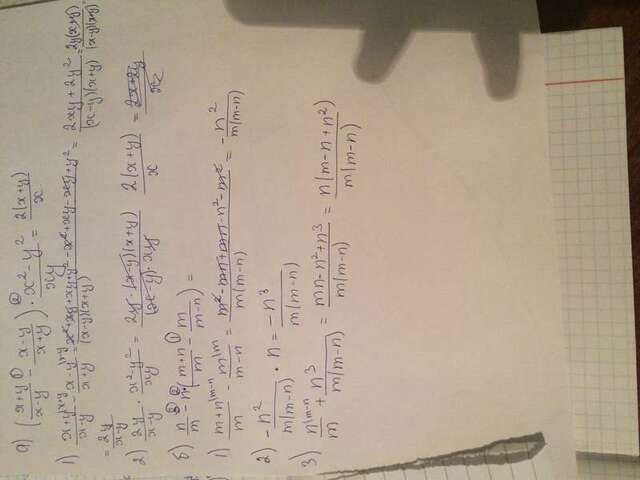 а) ( x+y / x-y ① - x-y / x+y ) ② · x² - y² / xy = 2(x+y) / x
1) x+y |x+y / x-y - x-y |x-y / x+y = x²+xy+xy+y² - x²+xy-xy+y² / (x-y)(x+y) = 2xy+2y² / (x-y)(x+y) = 2y(x+y) / (x-y)(x+y)
= 2y / x-y
2) 2y / x-y · x²-y² / xy = 2y · (x-y)(x+y) / (x-y) · xy 2(x+y) / x = 2x+2y / x
б) n / m ③ - n ② ( m+n / m ① - m / m-n ) =
1) m+n |m-n / m - m |m / m-n = m² - mn + mn - n² - m² / m(m-n) = -n² / m(m-n)
2) -n² / m(m-n) · n = -n³ / m(m-n)
3) n |m-n / m + n³ / m(m-n) = mn-n²+n³ / m(m-n) = n(m-n+n²) / m(m-n)